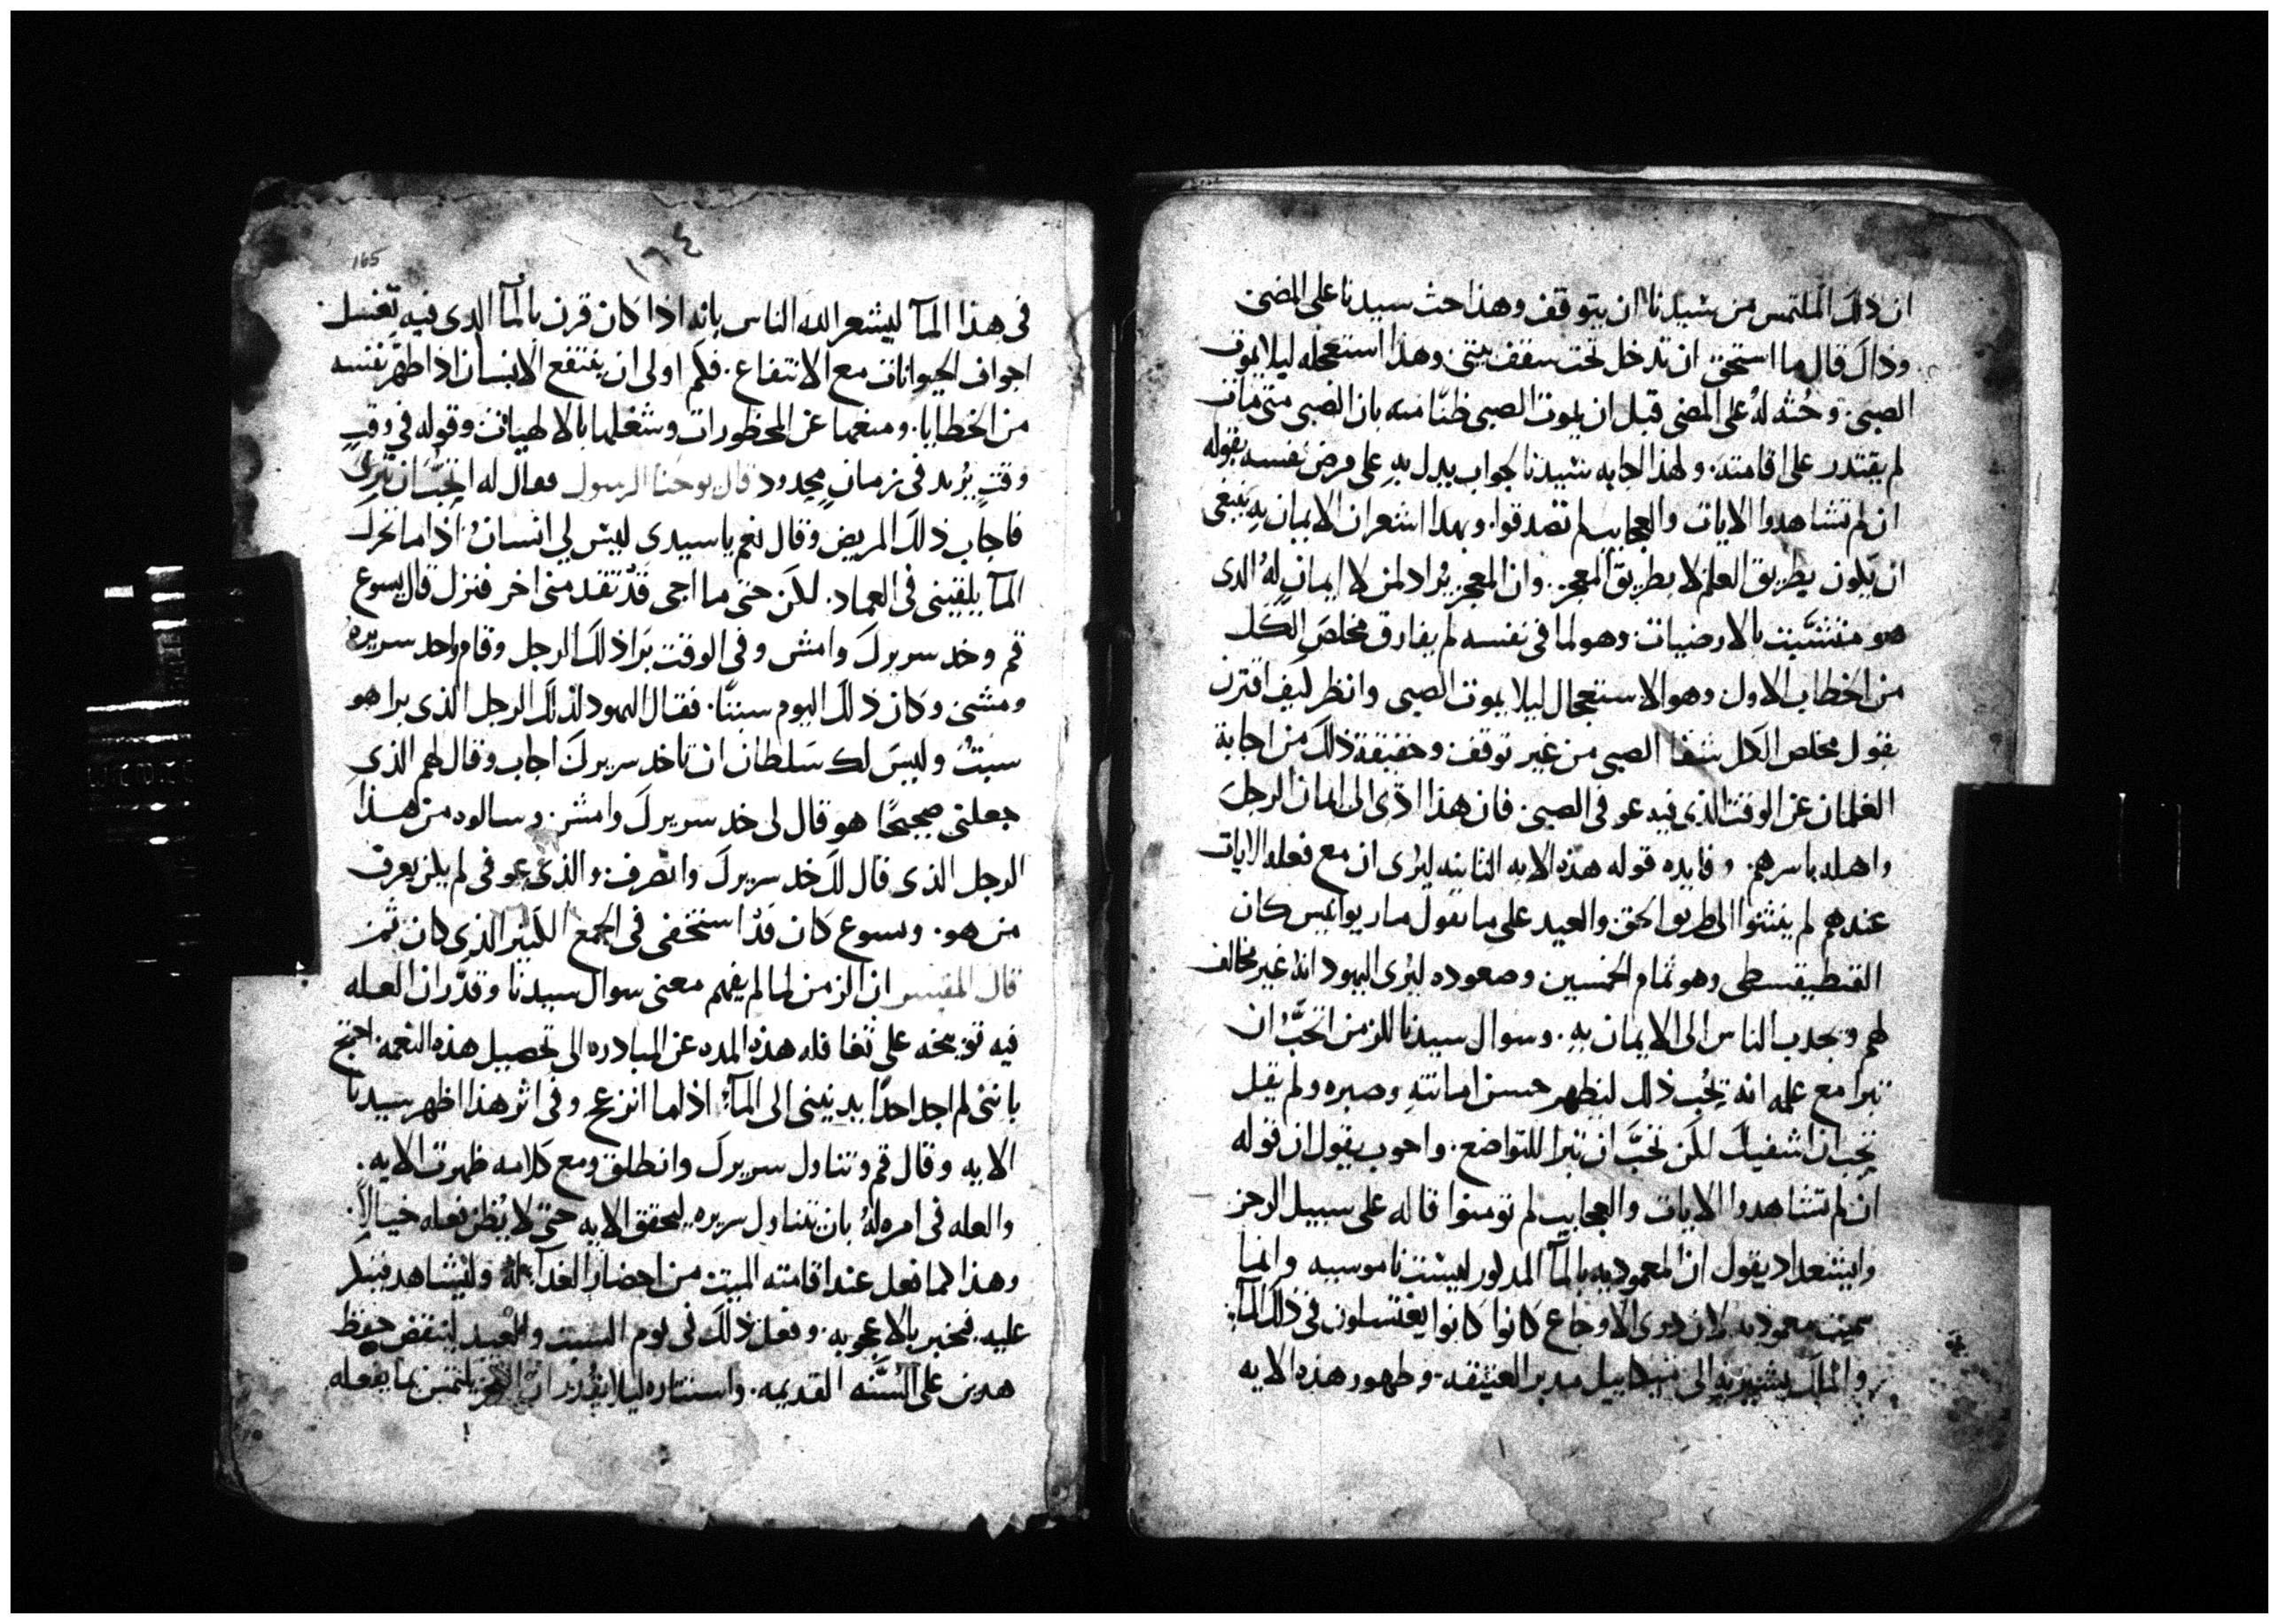 ان ذلك الملتمس من سيدنا ان يتوقف وهذا حث سيدنا على المضى
وذاك قال ما استحق ان تدخل تحت سقف بيتى وهذا استعجله ليلا يموت
الصبى. وحثه له على المضى قبل ان يموت الصبى ظنا منه بان الصبى متى مات
لم يقتدر على اقامته. ولهذا اجابه سيدنا بجواب يدل به على مرض نفسه بقوله
ان لم تشاهدوا الايات والعجايب لم تصدقوا. وبهذا اشعر ان الايمان به ينبغى
ان يكون بطريق العلم لا بطريق المعجز. وان المعجز يراد لمن لا ايمان له الدى
هو متشبت بالارضيات وهو لما فى نفسه لم يفارق مخلص الكل
من الخطاب الاول وهو الاستعجال ليلا يموت الصبى وانظر كيف اقترن
بقول مخلص الكل شفا الصبى من غير توقف وحقيقة ذلك من اجابة
الغلمان عن الوقت الذى فيه عوفى الصبى. فان هذا ادى الى امان الرجل
واهله باسرهم. وفايده قوله هذه الايه الثانيه ليرى ان مع فعله الايات
عندهم لم ينثنوا الى طريق الحق والعيد على ما يقول مار يوانيس كان
القنطيقسطى وهو تمام الخمسين وصعوده ليرى اليهود انه غير مخالف
لهم ويجدب الناس الى الايمان به. وسوال سيدنا للزمن اتحب ان
تبرا مع علمه انه يحب ذلك ليظهر حسن امانته وصبره ولم يقل
تحب ان اشفيك لكن تحب ان تبرا للتواضع. واحوب يقول ان قوله
ان لم تشاهدوا الايات والعجايب لم تومنوا قاله على سبيل الرجز
وايشعداد يقول ان المعموديه بالما المدكور ليست ناموسيه وانما
سميت معموديه لان دوى الاوجاع كانوا كانوا يغتسلون فى ذلك الما
والملك يشير به الى ميكاييل مدبر العتيقه. وظهور هذه الايه
١٦٤
165
فى هذا الما ليشعر الله الناس بانه اذا كان قرن بالما الدى فيه تغسل
اجواف الحيوانات مع الانتفاع. فكم اولى ان ينتفع الانسان اذا طهر نفسه
من الخطايا. ومنعها عن المحظورات وشغلها بالالهيات وقوله فى وقت
وقت يريد فى زمان محدود قال يوحنا الرسول فعال له اتحب ان تبرى
فاجاب ذلك المريض وقال نعم يا سيدى ليس لى انسان اذا ما تحرك
الما يلقينى فى العماد. لكن حتى ما اجى قد تقدمنى اخر فنزل قال يسوع
قم وخد سريرك وامش وفى الوقت برا ذلك الرجل وقام واخد سريره
ومشى وكان ذلك اليوم سبتا. فقال اليهود لذلك الرجل الذى برا هو
سبت وليس لك سلطان ان تاخد سريرك اجاب وقال لهم الذى
جعلنى صحيحا هو قال لى خد سريرك وامش. وسالوه من هذا
الرجل الذى قال لك خد سريرك وانصرف. والذى عوفى لم يكن يعرف
من هو. ويسوع كان قد استخفى فى الجمع الكثير الذى كان ثمز
قال المفسر ان الزمن لما لم يفهم معنى سوال سيدنا وقدر ان العله
فيه توبيخه على تغافله هذه المده عن المبادره الى تحصيل هذه النعمه. احتج
باننى لم اجد احدا يدنينى الى الما. اذا ما انزعج وفى اثر هذا اظهر سيدنا
الايه وقال قم وتناول سريرك وانطلق ومع كلامه ظهرت الايه.
والعله فى امره له بان يتناول سريره ليحقق الايه حتى لا يظن فعله خيالا.
وهذا كما فعل عند اقامته الميت من احضار الغدا له وليشاهد
عليه. فيخبر بالاعجوبه. وفعل ذلك فى يوم السبت والعيد لينقض حفظ
هدين على السنه القديمه. واستتاره ليلا يقدر انه يلتمس بما يفعله